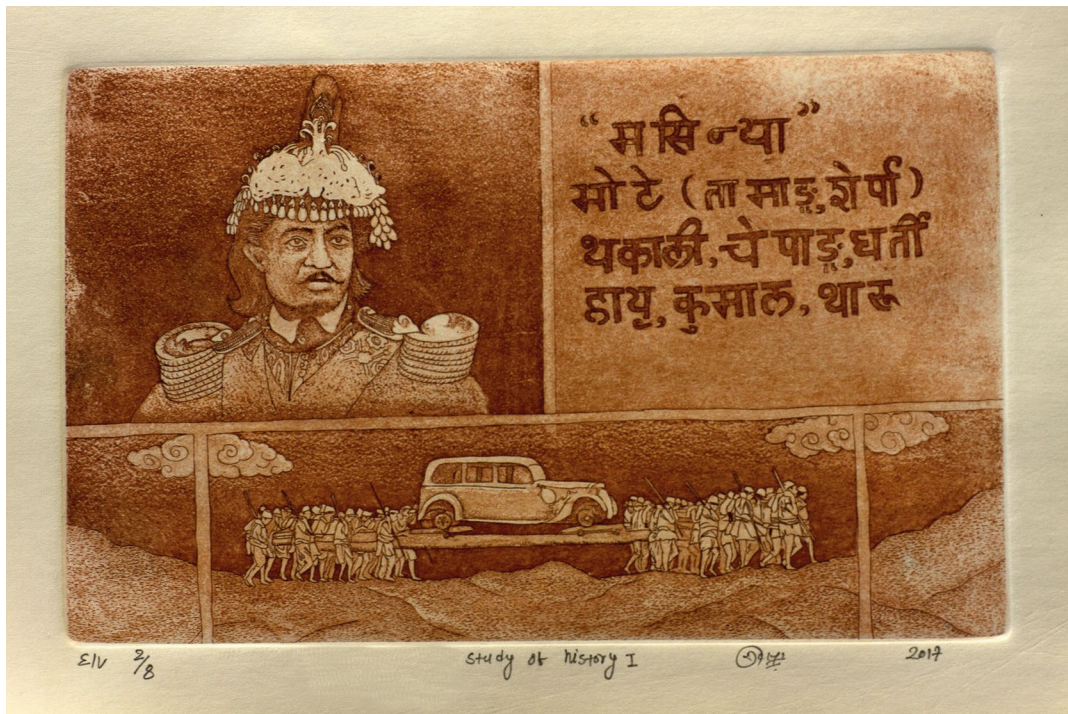 “मसिन्या”
भोटे (तामाङ्, शेर्पा)
थकाली, चेपाङ्, घर्ती
हायु, कुसाल, थारू
E/V 2/8 study of history I 2017